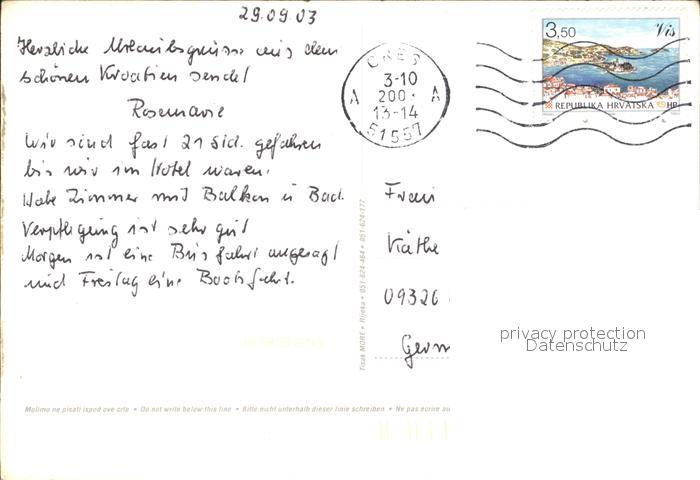 29.09.03
Herzliche Urlaubsgrüsse aus dem
schönen Kroatien sendet
Rosemarie
Wir sind fast 21 Std. gefahren
bis wir im Hotel waren.
Habe Zimmer mit Balkon u Bad.
Verpflegung ist sehr gut
Morgen ist eine Busfahrt angesagt
und Freitag eine Bootsfahrt.
CRES
3-10
200
13-14
A A
51557
3,50 Vis
REPUBLIKA HRVATSKA HP
Frau
Käthe
09326
Germ
Tisak MORE • Rijeka • 051-624-464 • 051-624-177
privacy protection
Datenschutz
Molimo ne pisati ispod ove crte • Do not write below this line • Bitte nicht unterhalb dieser linie schreiben • Ne pas écrire au